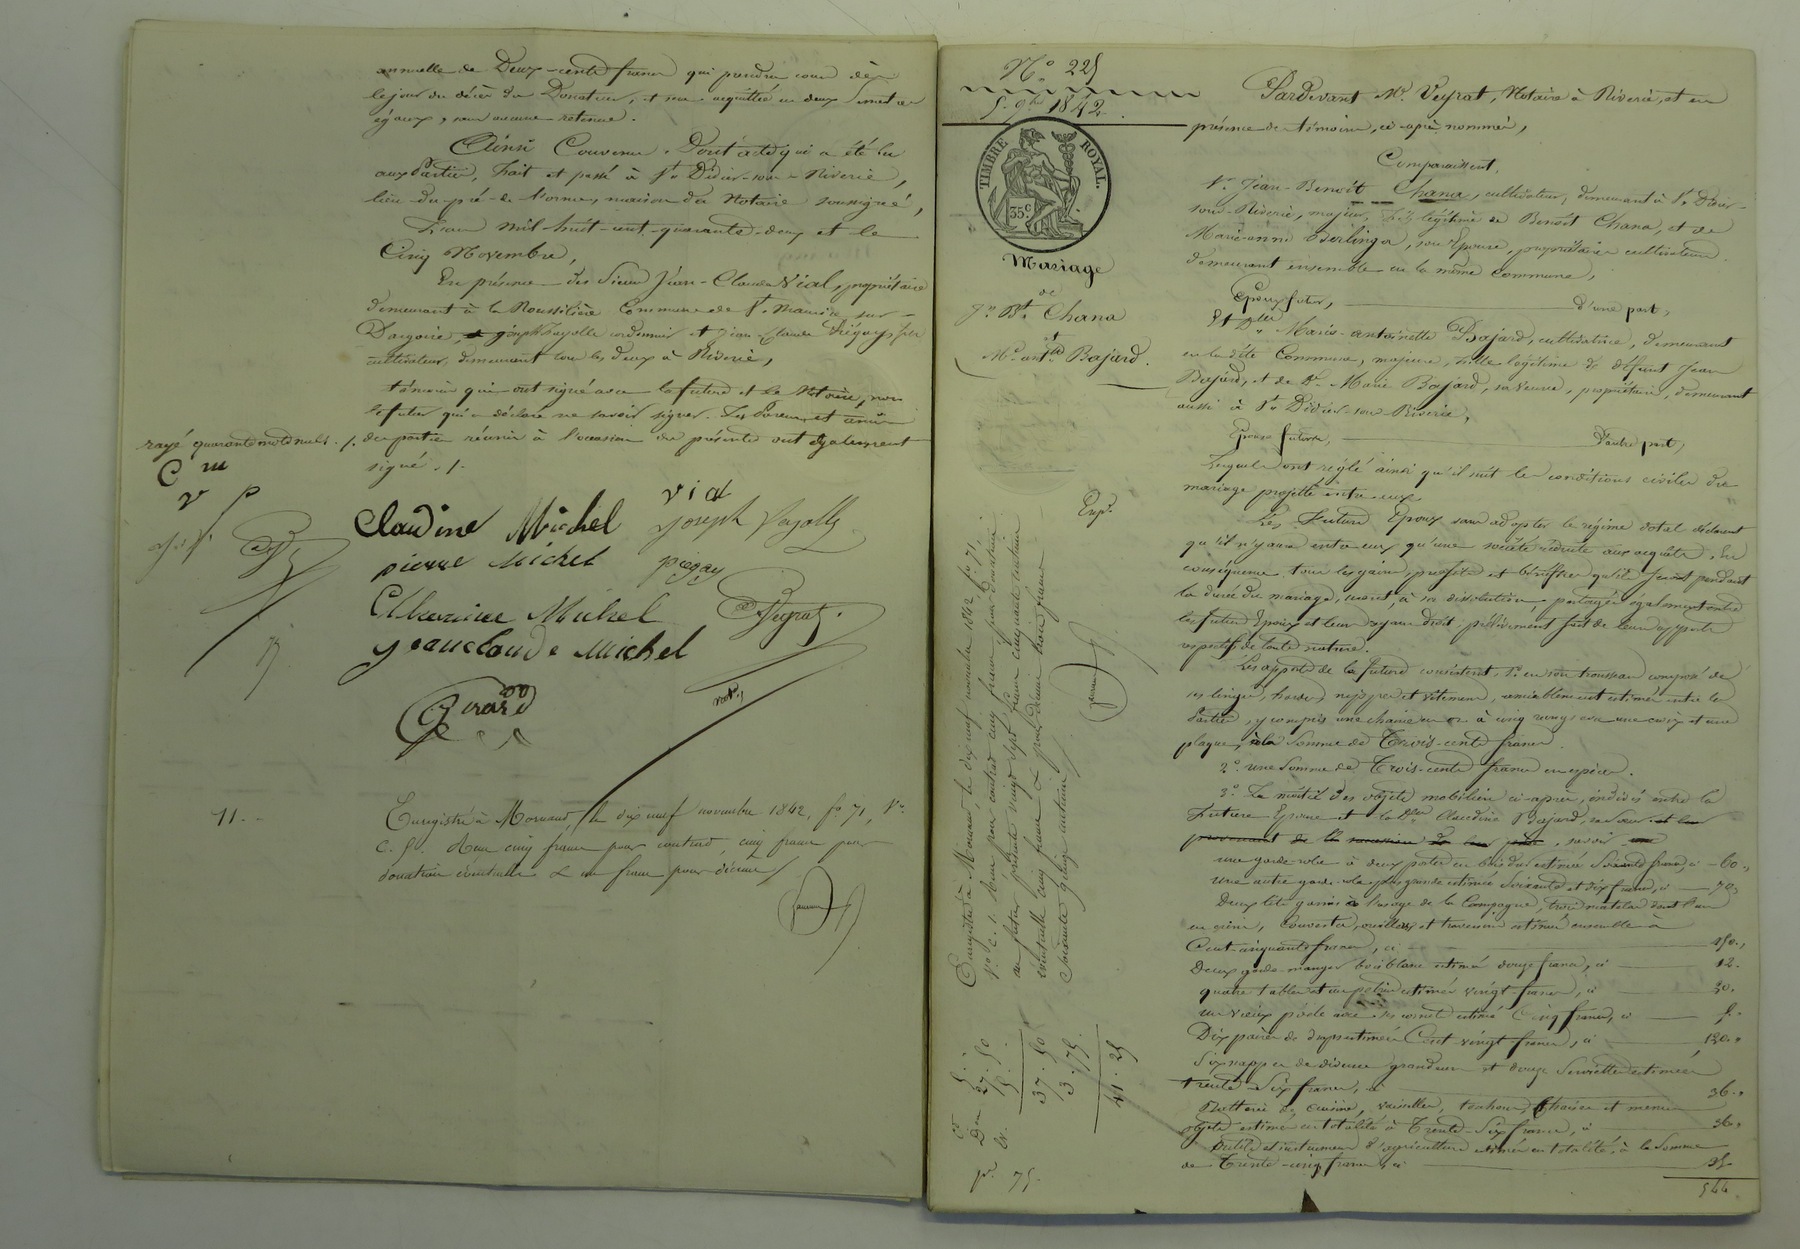 annuelle de Deux-cents francs qui prendra cours dès
le jour du décès du Donateur, et sera acquittée en deux
égaux, sans aucune retenue.
Ainsi Convenu. Dont acte qui a été lu
aux Parties, Fait et passé à St. Didier-sous-Riverie,
lieu du pré-de l'orme, maison du Notaire soussigné,
L'an mil-huit-cent-quarante-deux et le
Cinq Novembre,
En présence des Sieurs Jean-Claude Vial, propriétaire
demeurant à la Roussilière Commune de St. Maurice sur-
Dargoire, Joseph Fayolle cordonnier et Jean-Claude Piégay fils
cultivateur, demeurant tous les deux à Riverie,
témoins qui ont signé avec la future et le Notaire, non
le futur qui a déclaré ne savoir signer. Les Parens et amis
des parties réunis à l'occasion des présentes ont également
signé ./.
rayé quarante mots nuls ./.
C m
v p
Claudine Michel vial
Joseph Fayolle
pierre Michel piegay
Michel Veyrat
jeanclaude Michel
Girard
not.
11. -
Enregistré à Mornant, le dix neuf novembre 1842, fo. 71, Vo.
c. 5. Reçu cinq francs pour contrat, cinq francs pour
donation éventuelle & un franc pour décime
No. 225
5. 9bre 1842.
TIMBRE ROYAL.
35 c
Mariage
de
Jn. Bt. Chana
et
Me. antte. Bajard.
Exp.
Enregistré à Mornant, le dix neuf novembre 1842, fo. 71,
Vo. c. 1. Reçu pour contrat cinq francs, pour donation
au futur vingt sept francs cinquante centimes
éventuelle cinq francs & pour décime trois francs
soixante quinze centimes
Co 5. -
Don 27. 50
Ev. 5. -
37. 50
3. 75.
41. 25
75.
Pardevant Me. Veyrat, Notaire à Riverie, et en
présence des témoins, ci-après nommés,
Comparaissent,
Sr. Jean-Benoît Chana, cultivateur, demeurant à St. Didier-
sous-Riverie, majeur, fils légitime de Benoît Chana, et de
Marie-anne Berlinga, son Epouse, propriétaires cultivateurs
demeurant ensemble en la même commune,
Epoux futur, d'une part,
Et Dlle. Marie-antoinette Bajard, cultivatrice, demeurant
en la dite Commune, majeure, fille légitime de défunt Jean
Bajard, et de De. Marie Bajard, sa Veuve, propriétaire, demeurant
aussi à St. Didier-sous-Riverie,
Epouse future, d'autre part,
Lesquels ont réglé ainsi qu'il suit les conditions civiles du
mariage projetté entre eux
Les Futurs Epoux sans adopter le régime dotal déclarent
qu'il n'y aura entre eux qu'une société réduite aux acquêts. En
conséquence tous les gains, profits et bénéfices qu'ils feront pendant
la durée du mariage, seront, à sa dissolution, partagés également entre
les futurs Epoux et leurs ayans droit, prélèvement fait de leurs apports
respectifs de toute nature.
Les apports de la future consistent, 1o. en son trousseau composé de
ses linges, hardes, nippes et vêtemens, amiablement estimé entre les
Parties, y compris une chaine en or à cinq rangs avec une croix et une
plaque, à la Somme de Trois-cents francs.
2o. une Somme de Trois-cents francs en espèces.
3o. La moitié des objets mobiliers ci-après, indivis entre la
Future Epouse et la Dlle. Claudine Bajard, sa sœur et leur
provenant de la succession de leur père, savoir
une garde-robe à deux portes en bois dur estimée Soixante francs, ci - 60.,
une autre garde-robe plus grande estimée Soixante et dix francs, ci - 70,
Deux lits garnis à l'usage de la Campagne, trois matelas dont l'un
en crin, Couvertes, oreillers et traversins estimés ensemble à
Cent-cinquante francs, ci 150.,
Deux garde-manger bois blanc estimés douze francs, ci 12.
quatre tables et un pétrin estimés vingt-francs, ci 20.
un vieux poële avec ses cornets estimé Cinq francs, ci 5.
Dix paires de draps estimées Cent-vingt francs, ci 120.
Six nappes de diverses grandeurs et douze Serviettes estimées
trente-Six francs, ci 36.,
Batterie de cuisine, vaisselles, Chaises et menus
objets estimés en totalité à Trente-Six francs, ci 36.,
Outils et instrumens d'agriculture estimés en totalité, à la Somme
de Trente-cinq francs, ci 35
544